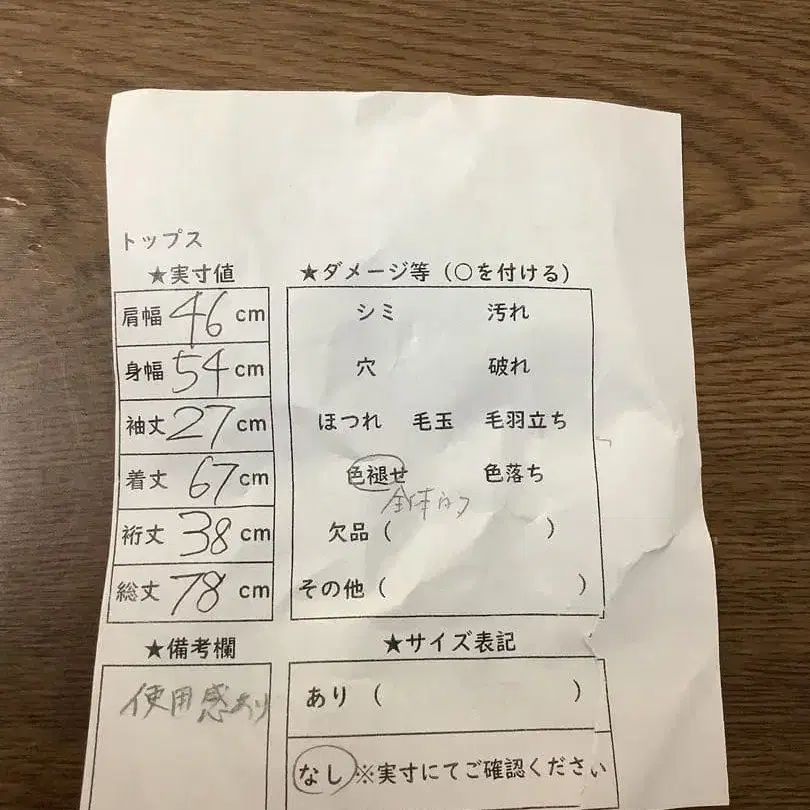 トップス
★実寸値
肩幅 46 cm
身幅 54 cm
袖丈 27 cm
着丈 67 cm
裄丈 38 cm
総丈 78 cm
★ダメージ等（○を付ける）
シミ 汚れ
穴 破れ
ほつれ 毛玉 毛羽立ち
色褪せ 色落ち
全体的
欠品（ ）
その他（ ）
★備考欄
使用感あり
★サイズ表記
あり（ ）
なし ※実寸にてご確認ください